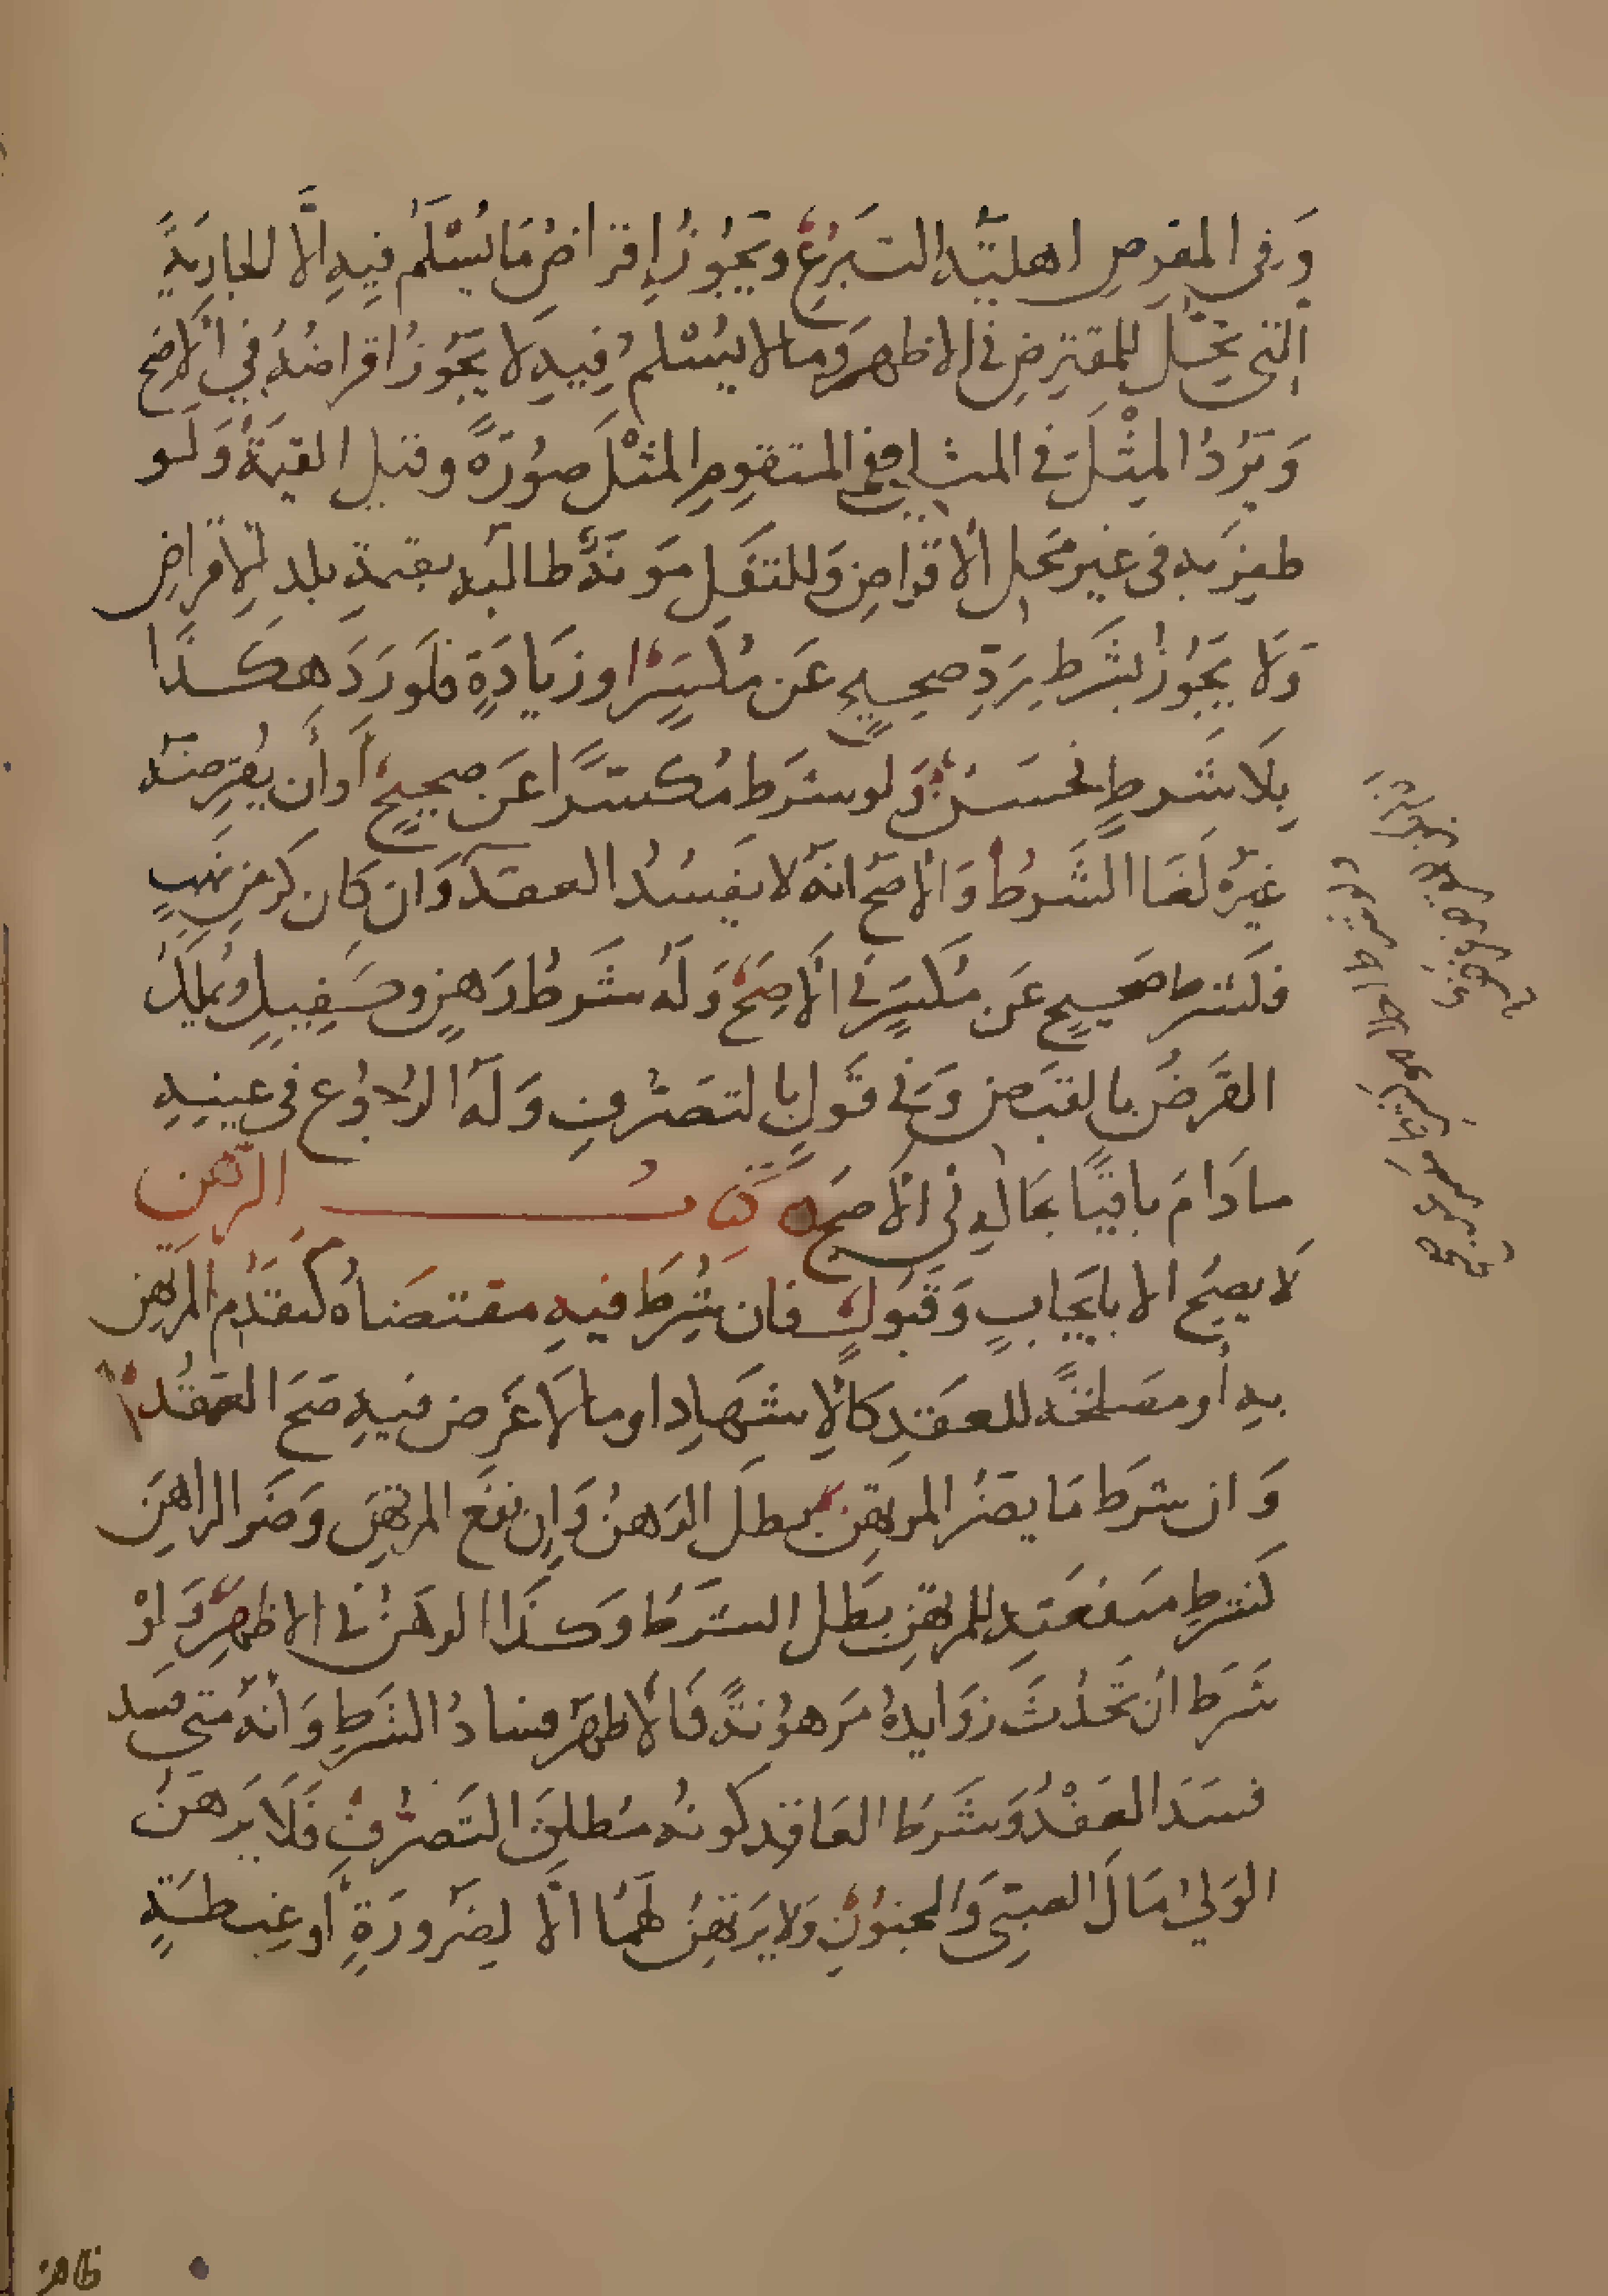 وَفي المقرض اهليّة التَبَرُّعِ ويَجُوزُ إقراضُ مَا يُسْلَمُ فِيهِ إلَّا الجاريَةَ
التي تحِلُّ للمقترِضِ في الاظهر وَما لا يُسْلم فِيهِ لا يَجُوزُ اقراضُهُ في الأَصَحِّ
وَيَرُدُّ المِثْلَ في المثلي وفي المتقومِ المِثْلَ صُورَةً وقيل القيمَةَ وَلَو
ظفِرَ به في غير مَحَلِ الاقراضِ وَللنقل مَوَنَةٌ طالَبه بقيمةِ بلد الاقراضِ
وَلا يَجُوزُ بشَرطِ رَدِّ صحيحٍ عَن مُكَسَّرٍ او زيَادَةٍ فلَو رَدَ هكذَا
بِلَا شَرطٍ فحَسَنٌ وَلو شرَط مُكسَّرًا عَن صحيحٍ أَو أَن يُقرِضَهُ
غيرَهُ لَغَا الشَّرطُ وَالأصَحُّ انَّهُ لا يَفسُدُ العقدُ وَان
فكَشرط صَحيحٍ عَن مُكسَّرٍ في الأَصَحِّ وَلَهُ شَرطُ رَهنٍ وكَفِيلٍ ويُملَكُ
القَرضُ بالقبَضِ وَفي قَولٍ بالتصَرُّفِ وَلَهُ الرُجُوعُ في عينِهِ
مادَامَ باقيًا بحَالِهِ في الأصَحِّ ه كتابُ الرَّهن
لا يصِحُّ الا بإيجَابٍ وَقَبُولٍ فان شُرِطَ فيهِ مقتضَاهُ كتَقَدُّمِ المرتهِنِ
بهِ أو مصَلحَةٌ للعَقدِ كالإِشهَادِ او ما لَا غَرَض فيهِ صَحَّ العَقدُ
وَان شرَط مَا يضُرُّ المرتهِن بطلَ الرَهنُ وَإِن نفَع المرتهِنَ وَضَرَّ الراهِنَ
كشرطِ منفعَتِهِ للمرتهنِ بطَل الشرَطُ وَكذَا الرهَنُ في الاظهرِ وَلَوْ
شَرَط ان تَحدُثَ زوَايدُهُ مَرهُونةً فَالأظهَرُ فسَادُ الشَرطِ وَأنَّهُ متَى فسَد
فسَدَ العَقْدُ وَشَرطُ العَاقِدِ كونُه مُطلقَ التَصَرُّفِ فَلَا يَرهَنُ
الوَليُّ مَالَ الصبيِّ وَالمجنُونِ وَلا يَرتَهِنُ لَهُمَا الَّا لِضَرُورَةٍ أَو غِبطَةٍ
ظاهرة